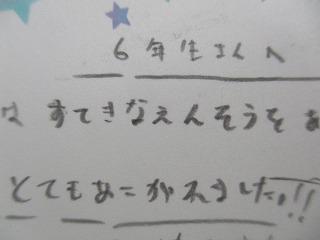 6年生さんへ
は すてきなえんそうをあ
とてもあこがれました!!